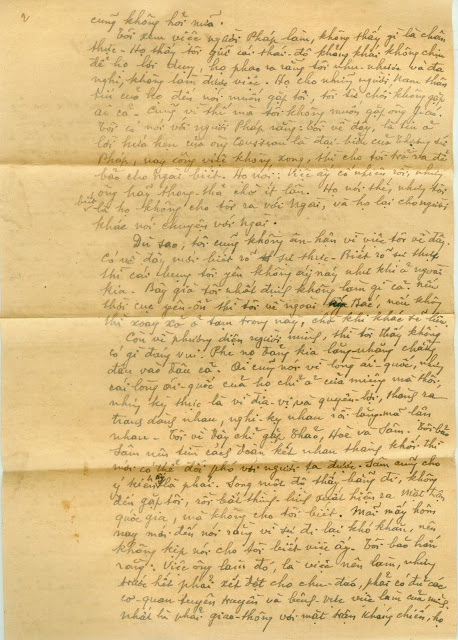 2
cũng không hỏi nữa.
Tôi xem việc người Pháp làm, không thấy gì là chân
thực - Họ thấy tôi giữ cái thái độ không khái không chịu
để họ lợi dụng, họ phao ra rằng tôi nhu-nhược và đa
nghi, không làm được việc - Họ cho những người Nam thân
tín của họ đến nói muốn gặp tôi, tôi từ chối không gặp
ai cả - Cũng vì thế mà tôi không muốn gặp ông
Tôi có nói với người Pháp rằng: Tôi về đây, là theo
lời hứa hẹn của ông Cousseau là đại-biểu của Thượng-sứ
Pháp, nay công việc không xong, thì cho tôi trở ra để
bảo cho Ngài biết. Họ nói: Việc ấy cố nhiên rồi, nhưng
ông hãy thong-thả chờ ít lâu. Họ nói thế, nhưng tôi
biết là họ không cho tôi ra với Ngài, và họ lại cho người
khác nói chuyện với Ngài.
Dù sao, tôi cũng không ân-hận về việc tôi về đây.
Có về đây mới biết rõ sự thực - Biết rõ sự thực
thì cái bụng tôi yên không áy náy như khi ở ngoài
kia - Bây giờ tôi nhất định không làm gì cả - nếu
thời cục yên-ổn thì tôi về ngoài Bắc, nếu không
thì xoay xở ở tạm trong này, chờ khi khác sẽ liệu.
Còn về phương diện người mình, thì tôi thấy không
có gì đáng vui. Phe nọ đảng kia lăng-nhăng chẳng
đâu vào đâu cả - Ai cũng nói vì lòng ái-quốc, nhưng
cái lòng ái-quốc của họ chỉ ở cửa miệng mà thôi,
nhưng kỳ thực là vì địa-vị và quyền-lợi, thành ra
tranh dành nhau, nghi-kỵ nhau rồi lăng-mạ lẫn
nhau - Tôi về đây chỉ gặp Thảo, Hoè và Sâm - Tôi bảo
Sâm nên tìm cách đoàn kết nhau thành khối thì
mới có thể đối phó với người ta được - Sâm cũng cho
ý kiến ấy là phải - Song một độ thấy hắng đi, không
đến gặp tôi, rồi bất thình lình xuất hiện ra Mặt trận
quốc gia, mà không cho tôi biết. Mãi mấy hôm
nay mới đến nói rằng vì sự đi lại khó khăn, nên
không kịp nói cho tôi biết việc ấy - Tôi bảo hắn
rằng: Việc ông làm đó, là việc nên làm, nhưng
trước hết phải xét cho chu-đáo, phải có đủ các
cơ-quan tuyên truyền và bênh-vực việc làm của mình,
nhất là phải giao-thông với mặt trận kháng chiến, họ